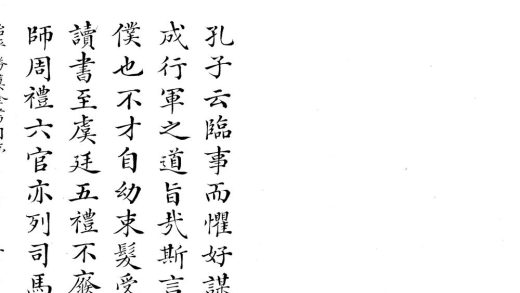 孔子云臨事而懼好謀
成行軍之道旨哉斯言
僕也不才自幼束髮受
讀書至虞廷五禮不廢
師周禮六官亦列司馬